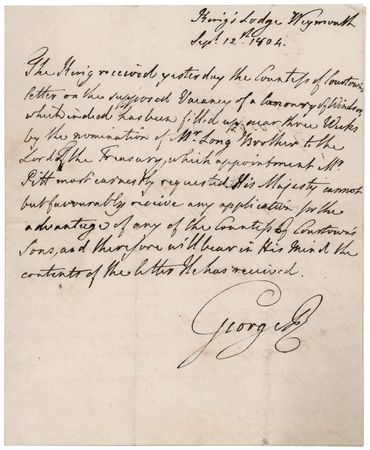 King's Lodge Weymouth
Sept. 12th. 1804.
The King received yesterday the Countess of Courtown's
letter on the supposed Vacancy of a Canonry of Windsor
which indeed has been filled up near three Weeks
by the nomination of Mr. Long Brother to the
Lord of the Treasury, which appointment Mr.
Pitt most earnestly requested. His Majesty cannot
but favourably receive any application for the
advantage of any of the Countess of Courtown's
Sons, and therefore will bear in His Mind the
contents of the letter He has received.
George R